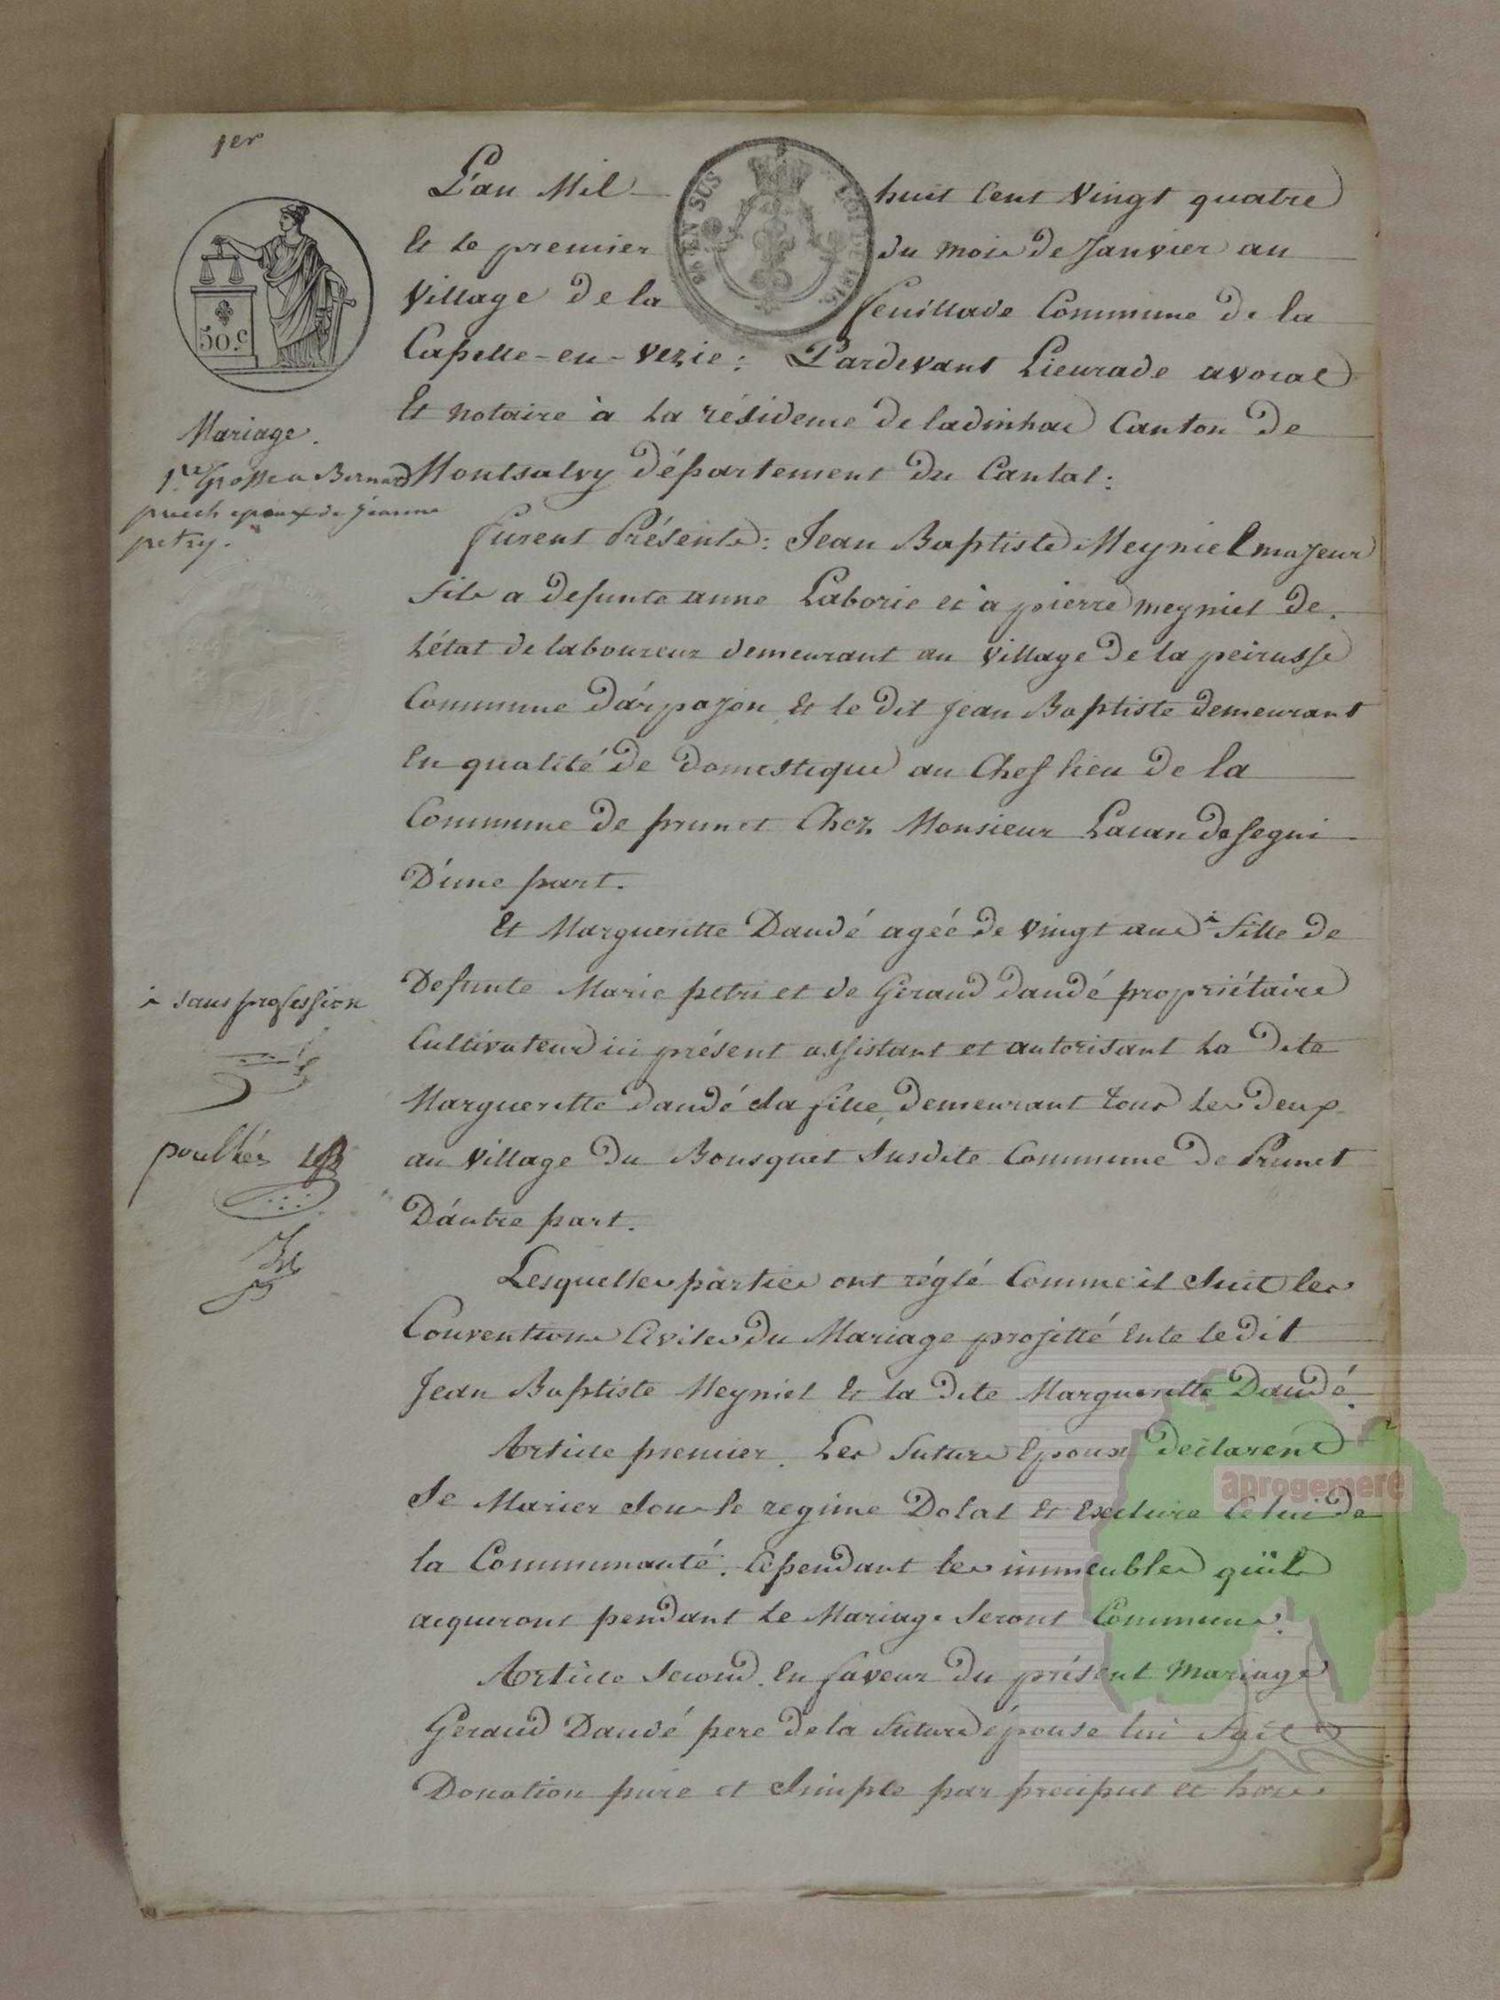 1er
L'an Mil huit Cent Vingt quatre
Et le premier du mois de Janvier au
Village de la feuillade Commune de la
Capelle-en-Vezie: Pardevant Lieurade avocat
Et notaire à la résidence de ladinhac Canton de
Montsalvy département du Cantal:
furent Présents: Jean Baptiste Meyniel majeur
fils a defunte anne Laborie et à pierre meyniel de
L'état de laboureur demeurant au Village de la peirusse
Commune d'arpajon Et le dit Jean Baptiste demeurant
En qualité de domestique au Chef lieu de la
Commune de prunet Chez Monsieur Lacan de segui
D'une part.
Et Margueritte Daudé agée de Vingt ans fille de
Defunte Marie petri et de Geraud daudé propriétaire
Cultivateur ici présent assistant et autorisant la dite
Marguerette daudé sa fille, demeurant tous les deux
au Village du Bousquet Susdite Commune de Prunet
D'autre part.
Lesquelles parties ont réglé Comme il Suit les
Conventions Civiles du Mariage projetté Ente le dit
Jean Baptiste Meyniel Et la dite Marguerette Daudé.
Article premier. Les futurs Epoux déclarent
Se Marier Sous le regime Dotal Et Exclure Celui de
la Communauté. Cependant les immeubles qu'ils
acqueront pendant le Mariage Seront Communs.
Article Second. En faveur du présent Mariage
Geraud Daudé pere de la future épouse lui fait
Donation pure et Simple par preciput et hors
50.c
EN SUS
LOI DE 1816
Mariage.
1re Grosse a Bernard
puech epoux de Jeanne
petry.
sans profession
poulhés
aprogemere